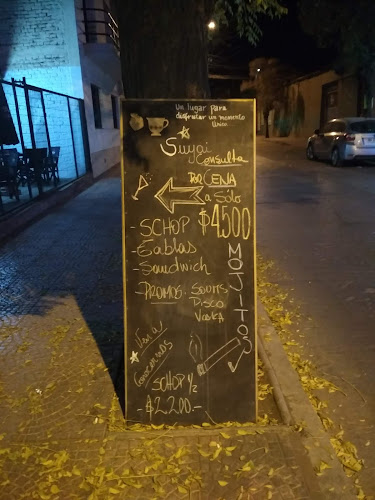 Un lugar para
desfrutar un momento
único
Suyai
Consulta
por CENA
a sólo
$4500
- SCHOP
- Tablas
- Sandwich
- PROMOS: Sours,
Pisco
Vodka
MOJITOS
Ven a
Conocernos
SCHOP 1/2
- $2.200.-